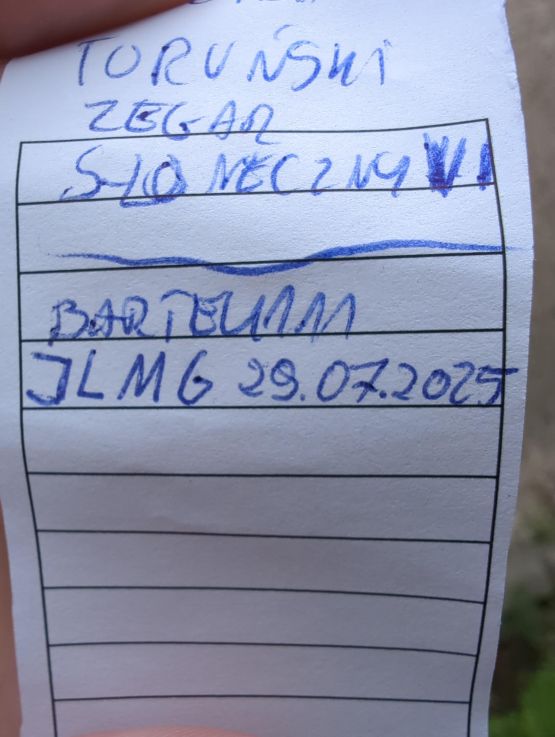 TORUŃSKI
ZEGAR
SŁONECZNY VI
BARTEU111
JLMG 29.07.2025